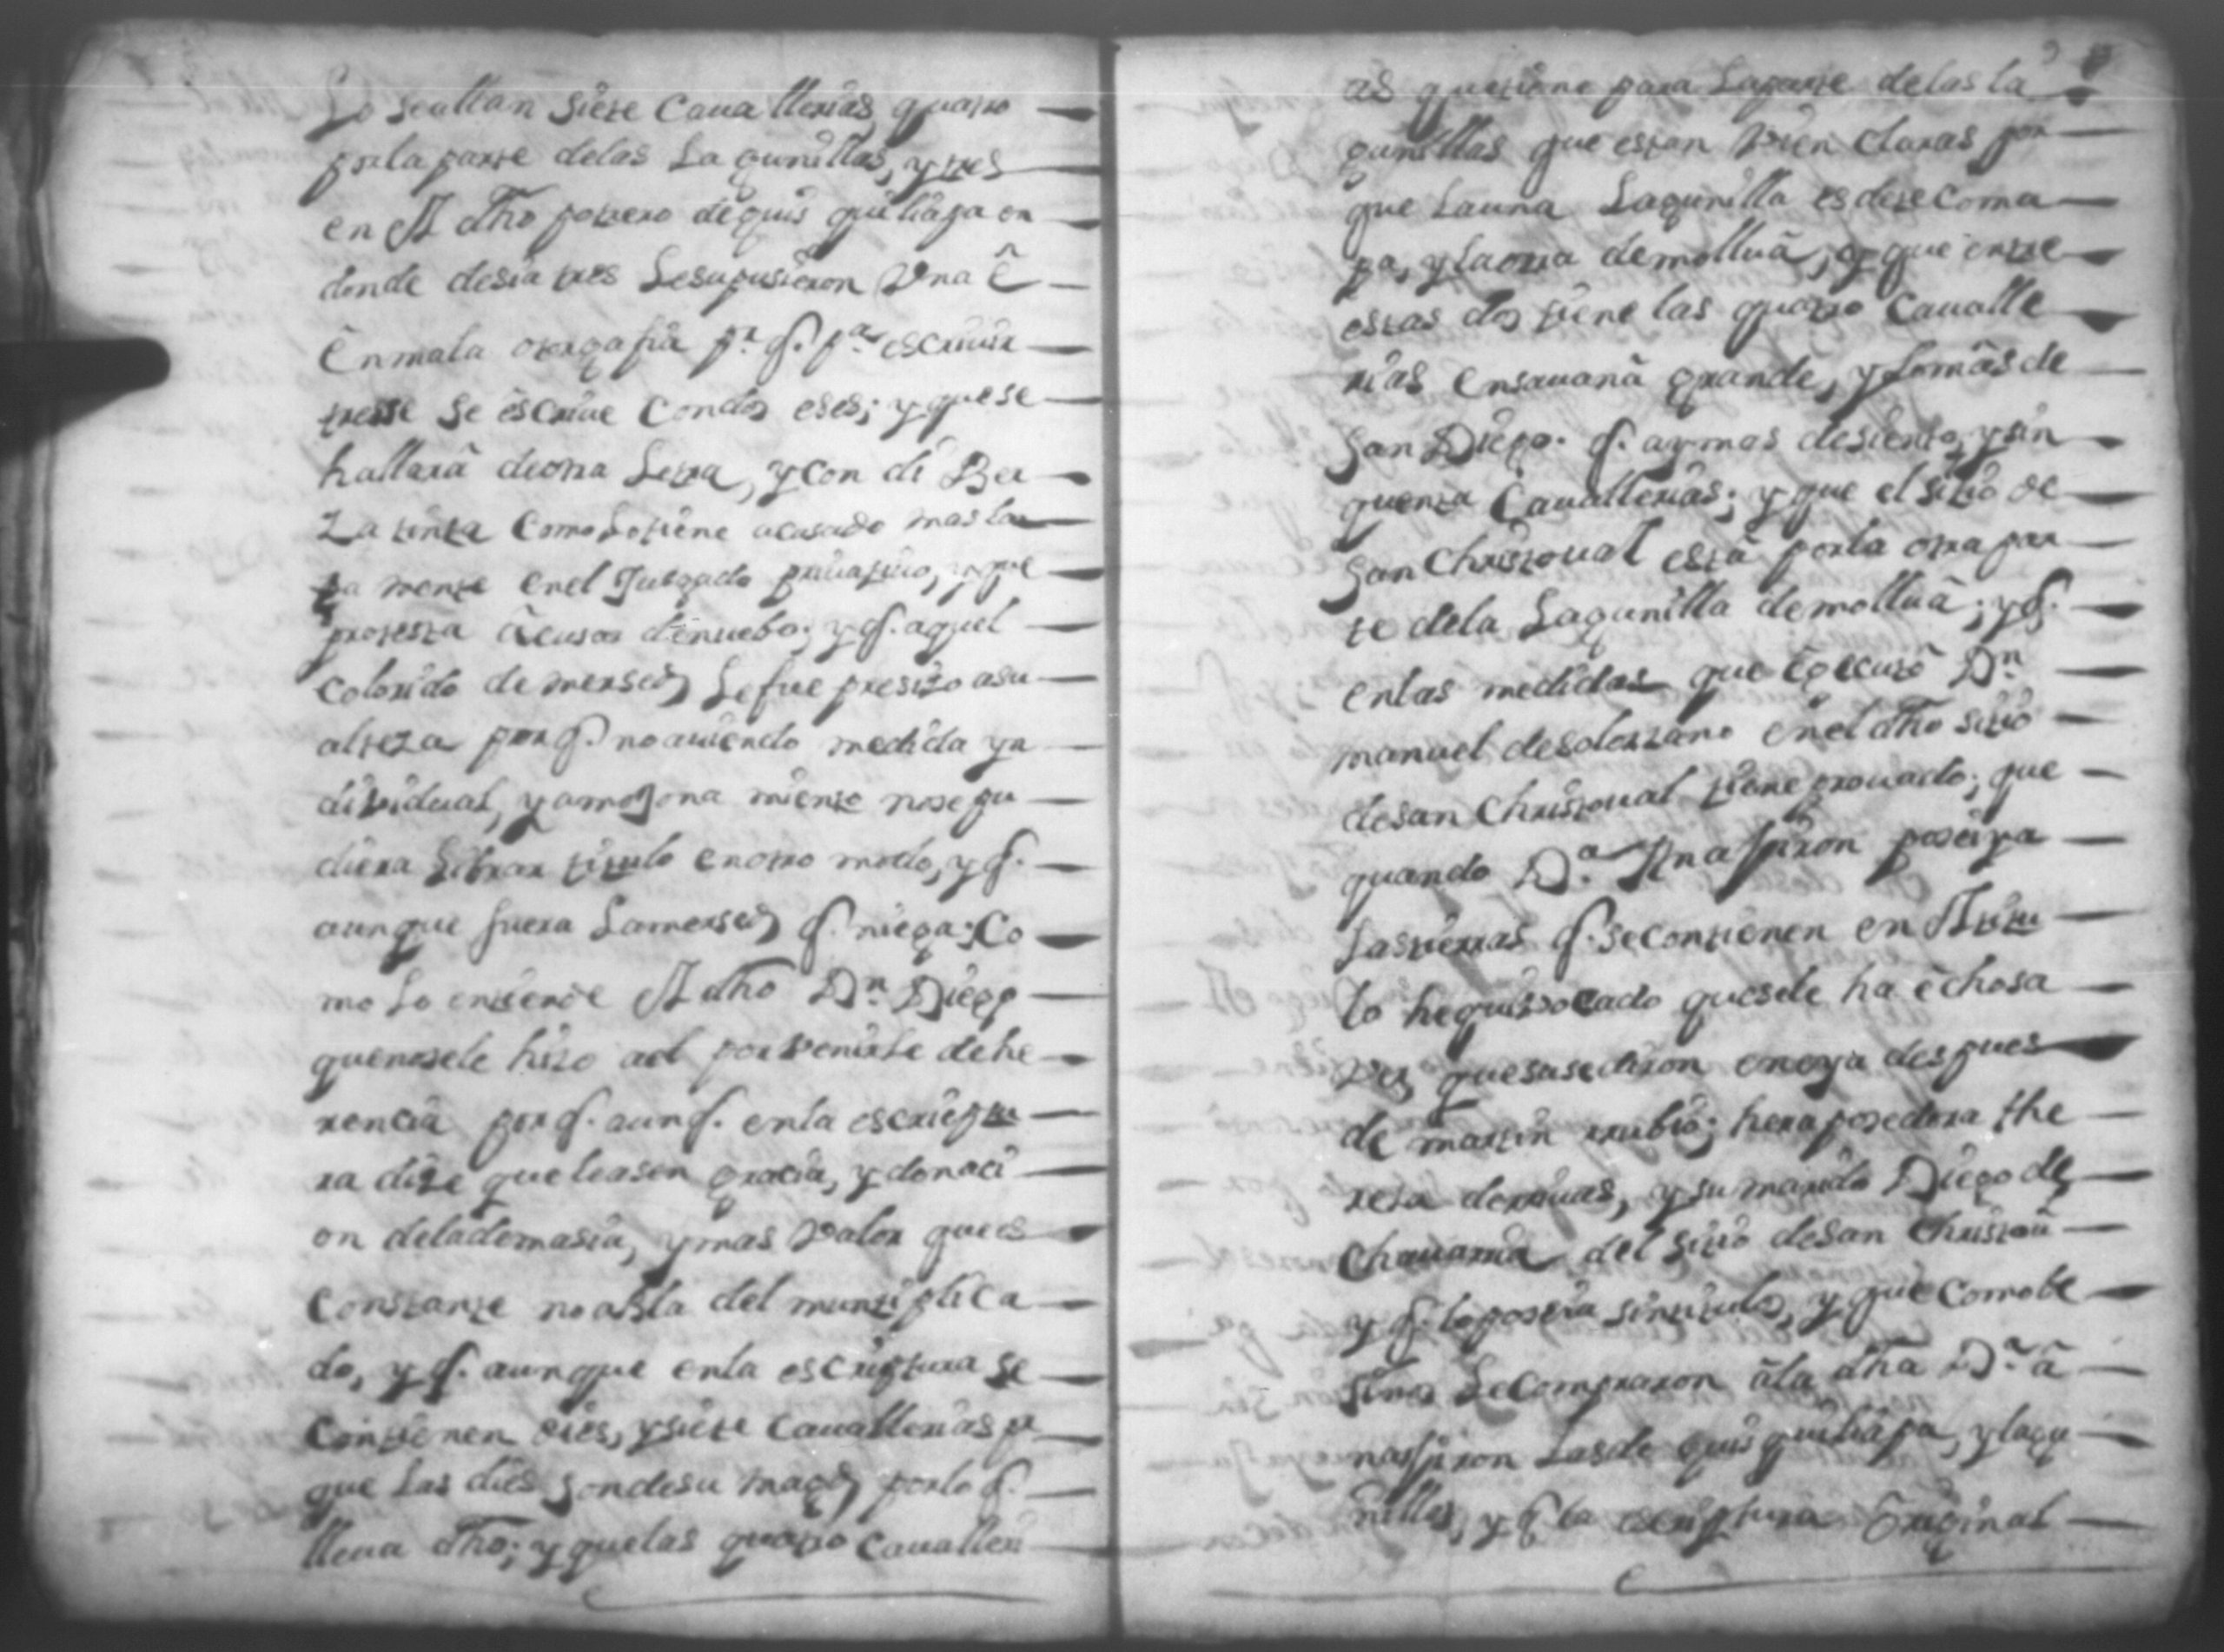 Lo seallan siete Cauallerias quatro
por la parte delas Lagunillas, y tres
en El dho potrero dequis quiliapa en
donde desia tres Lesupusieron Vna ê
En mala otorgafia pr. q. pa. escriuir
tresse se escriue Condos eses; y que se
hallara deotra Letra, y con di Ber
za tinta Como Lotiene acusado mas lar
ga mente enel Jusgado priuatiuo, y que
protesta âcusar denuebo; y q. aquel
Colorido de mersed Lefue presiso asu
alteza por q. no auiendo medida yn
diuidual, y amojona miento nose pu
diera Librar titulo en otro modo, y q.
aunque fuera Lamersed q. niega; Co
mo Lo entiende El dho Dn. Diego
quenosele hizo ael por Venirle de he
rencia por q. aun q. enla escriptu
ra dize que leasen gracia, y donaci
on delademasia, y mas Valor que es
Constante no abla del muntiplica
do, y q. aunque enla escriptura se
Contienen dies, y siete Cauallerias
que las dies son desu magd por lo q.
lleua dho; y quelas quatro Cavalleri
as quetiene para Laparte delas la
gunillas que estan Vien claras por
que Launa Lagunilla es detecoma
pa, y laotra demolluâ, y que entre
estas dos tiene las quatro Caualle
rias ensauanâ grande, y Lomas de
San Diego. q. ay mas desiento, y sin
quenta Cauallerias; y que el sitio de
San Christoual esta porla otra par
te dela Lagunilla demolluâ; y q.
enlas medidas que êgecuto Dn.
manuel desolorzano enel dho sitio
desan Christoual tiene prouado; que
quando Da. Ana jiron poseiya
Lastierras q. secontienen en El titu
lo hequibocado quesele ha echosa
ver quesusedieron enoya despues
de martin rrubio; hera posedora the
resa derriuas, y su marido Diego de
Chauarria del sitio desan Christou
y q. loposeia sintitulo, y que Comobe
sinos Lecompraron âla dha Da. â
na jiron Lasde quis quiliapa, y lagu
nillas, y q la escriptura Original